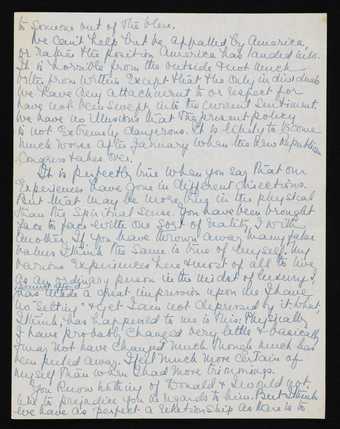 to someone out of the blue.
We can't help but be appalled by America,
or rather the position America has landed into.
It is horrible from the outside & not much
better from within except that the only individuals
we have any attachment to or respect for
have not been swept into the current sentiment.
We have no illusions that the present policy
is not extremely dangerous. It is likely to become
much worse after January when the new Republican
Congress takes over.
It is perfectly true when you say that our
experiences have gone in different directions.
But that may be more true in the physical
than the spiritual sense. You have been brought
face to face with one sort of reality, I with
another. If you have thrown away many false
values I think the same is true of myself.
Various experiences here & most of all to live
as an ordinary person in the midst of luxury
has made a great impression upon me. I have
no "setting" & yet I am not depressed by it. What,
I think, has happened to me is this: Physically
I have probably changed very little & basically
I may not have changed much though much has
been peeled away. I feel much more certain of
myself than when I had more trimmings.
You know nothing of Donald & I would not
like to prejudice you as regards to him. But I think
we have as perfect a relationship as there is to